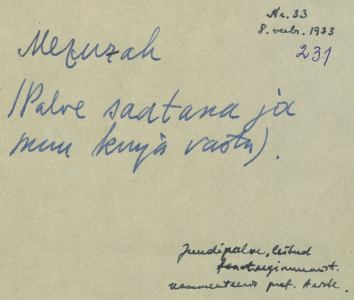 Nr. 33
8. veebr. 1973
231
Mezuzah
(Palve saatana ja
muu kurja vastu).
Juudipalve, leitud
prof. Ariste.